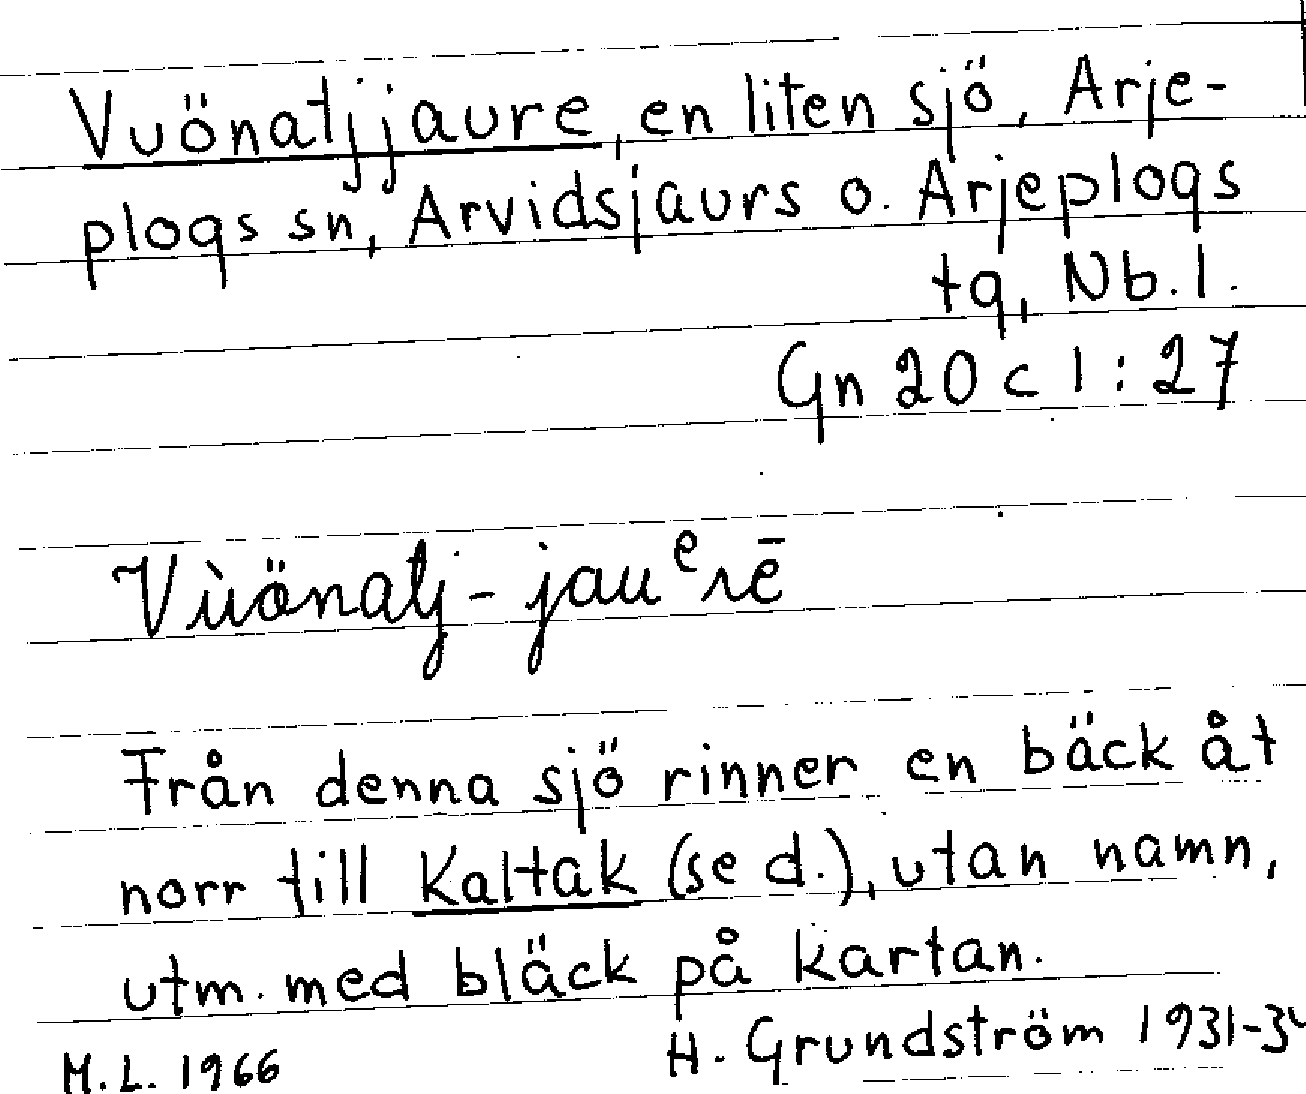 Vuönatjjaure, en liten sjö, Arje-
plogs sn, Arvidsjaurs o. Arjeplogs
tg, Nb. l.
Gn 20 c 1:27
Vùönatj-jauᵉrē
Från denna sjö rinner en bäck åt
norr till Kaltak (se d.), utan namn,
utm. med bläck på kartan.
H. Grundström 1931-
M.L. 1966